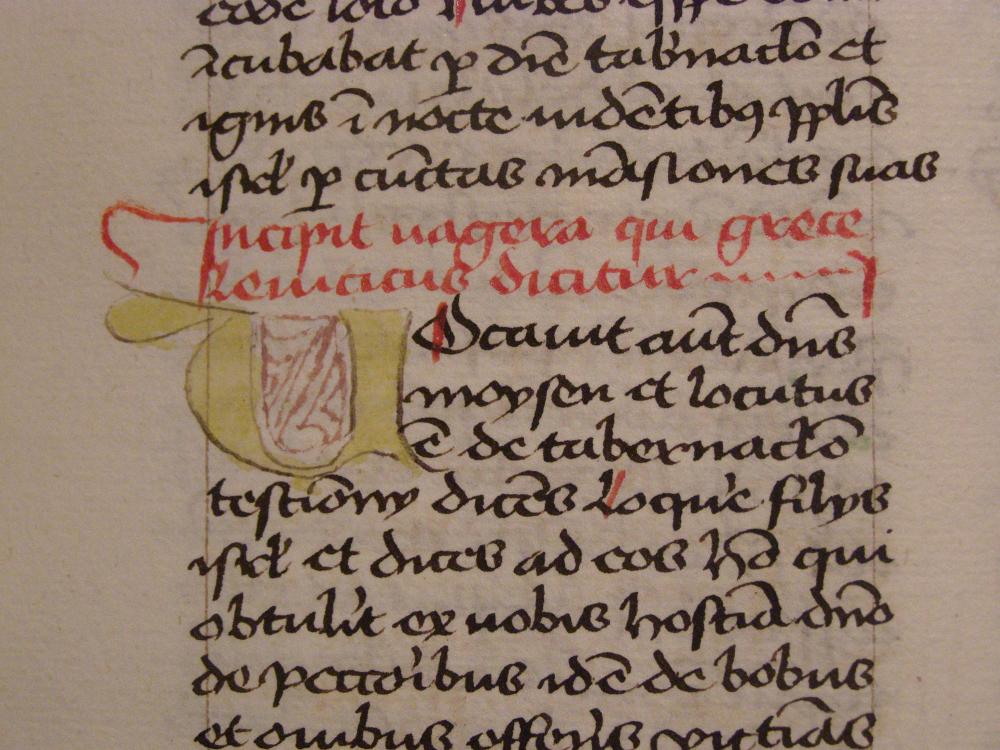 īcubabat ꝑ diē tab'naclo et
ignis ī nocte uidētibꝫ pplis
isrl ꝑ cūctas māsiones suas
Incipit uagera qui grece
leuiticus dicitur
VOcauit aūt dn̄s
moysen et locutus
ē de tabernaclo
testiōny dicēs loque' filiys
isrl et dices ad eos hō qui
obtulit ex uobis hostiā dn̄o
de peccoribus idē de bobus
et ouibus offerēs victīas